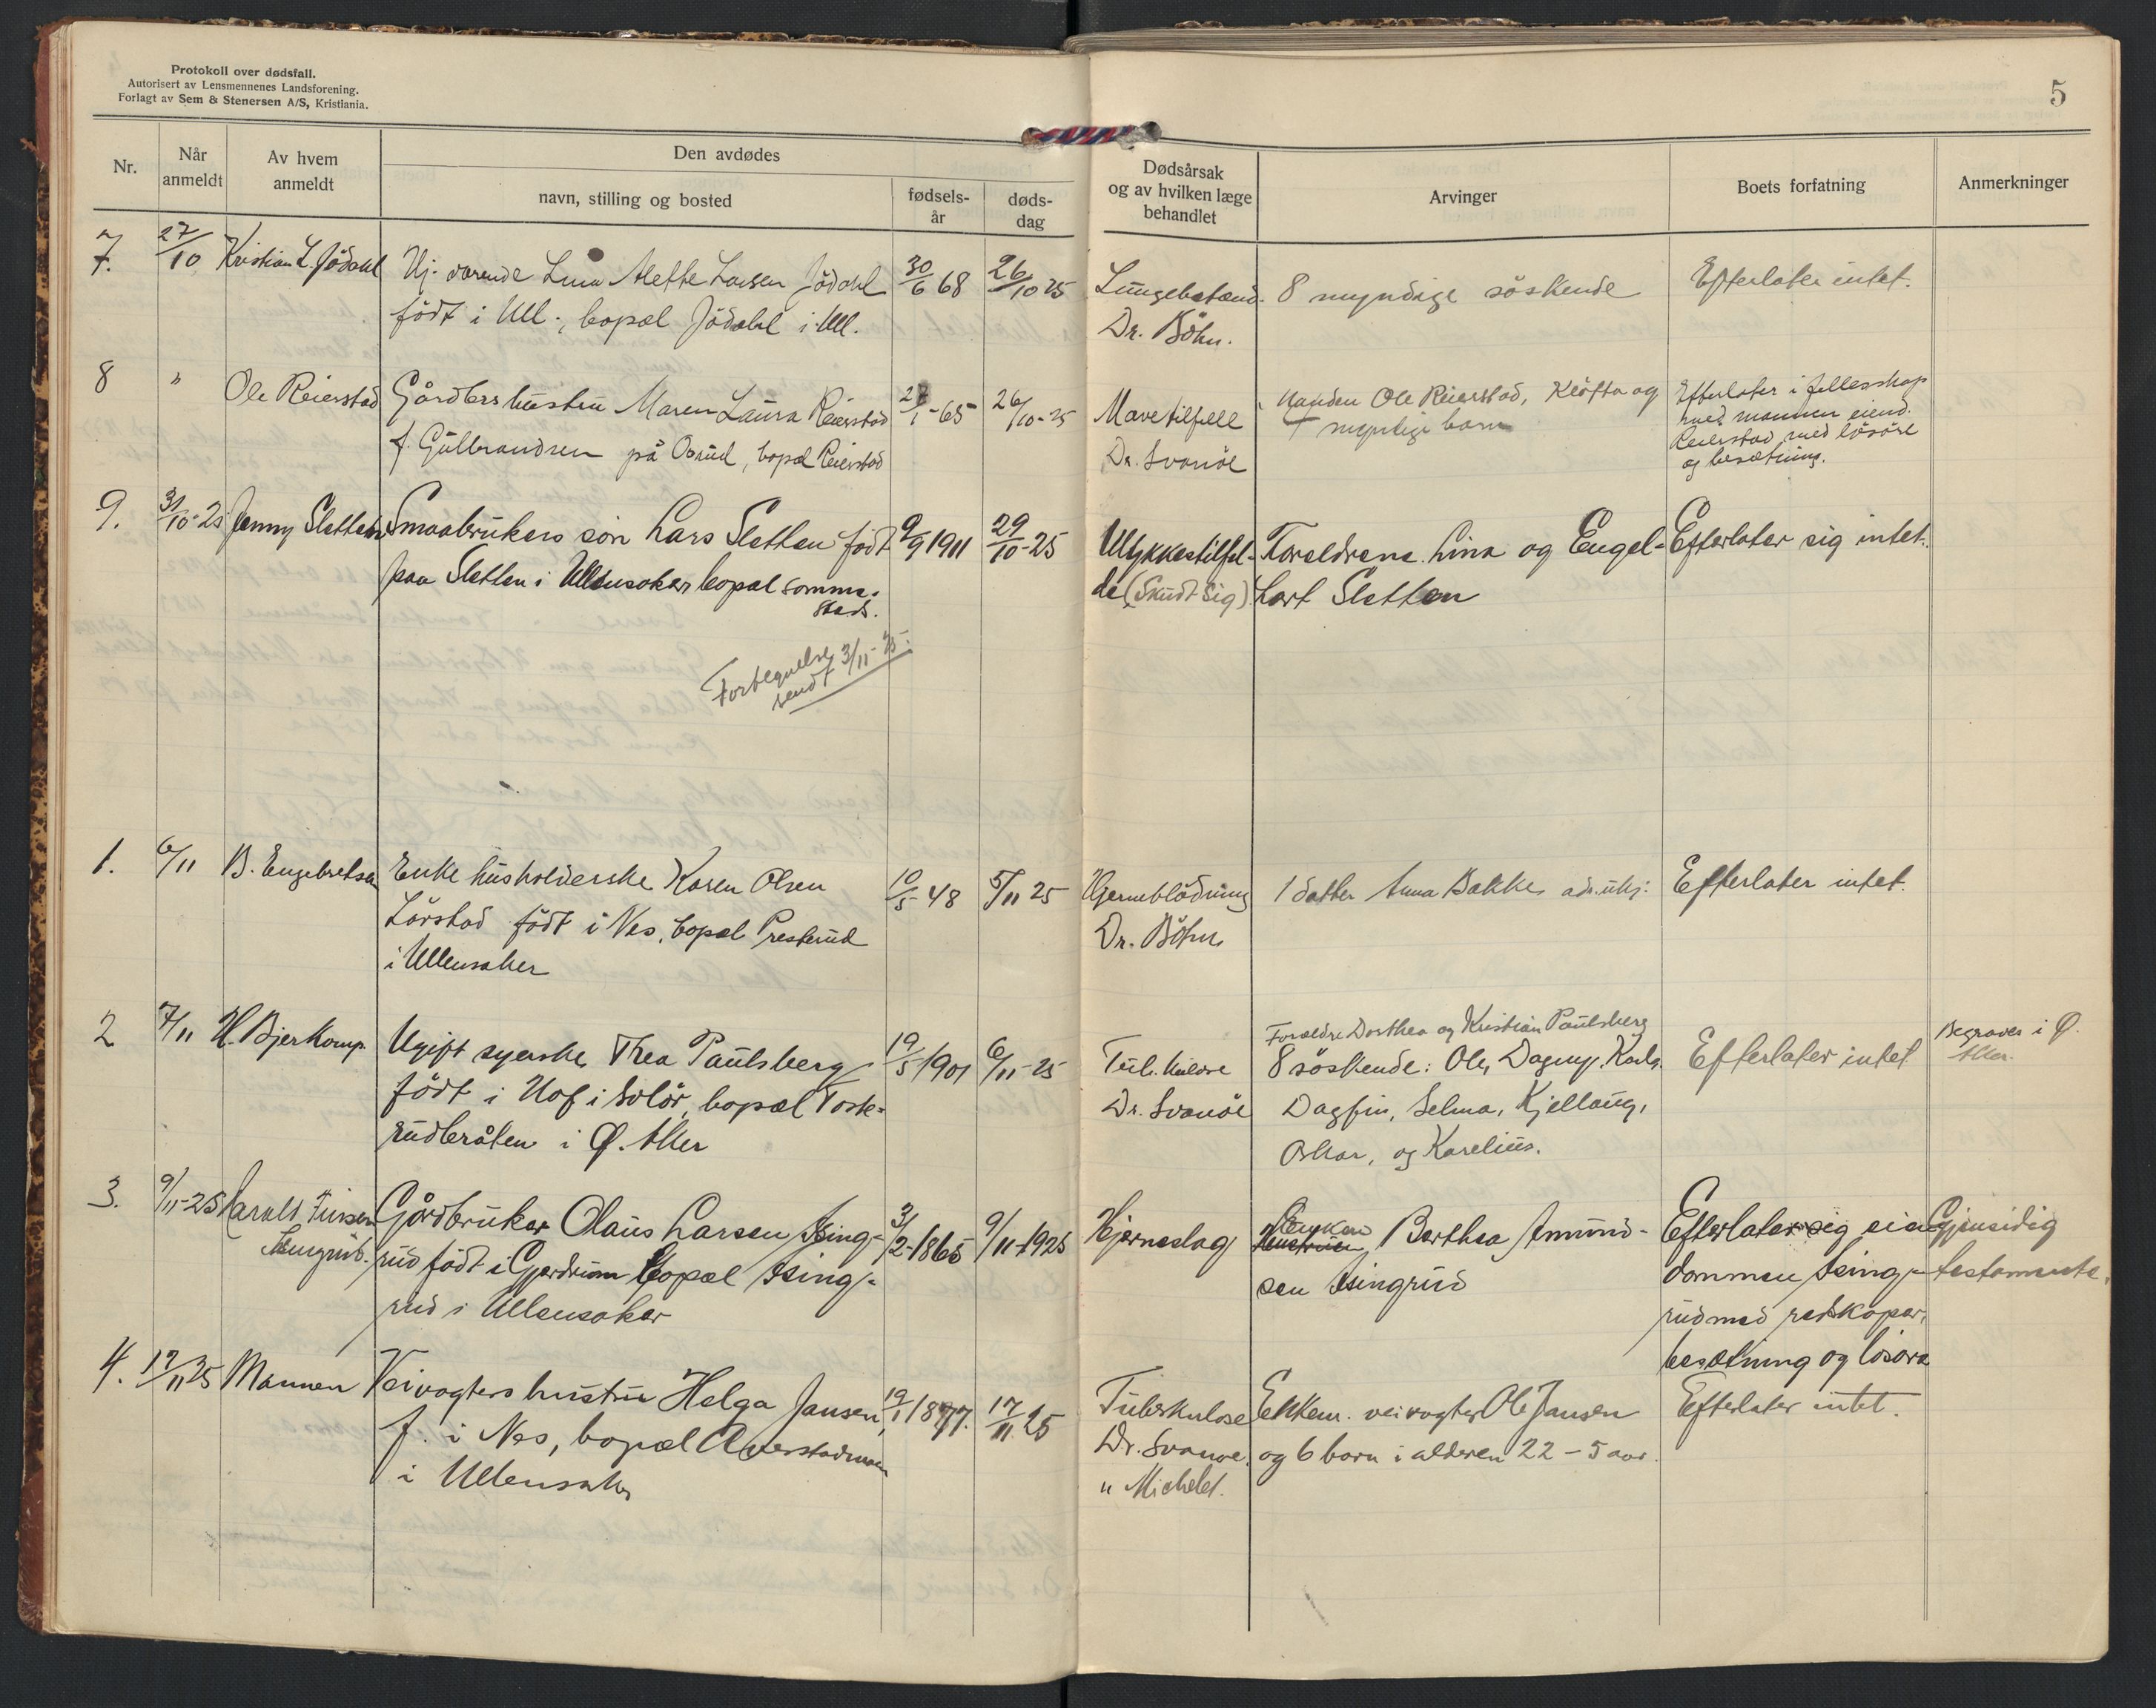 Protokoll over dødsfall.
Autorisert av Lensmennenes Landsforening.
Forlagt av Sem & Stenersen A/S, Kristiania.
5
Nr.
Når anmeldt
Av hvem anmeldt
Den avdødes
navn, stilling og bosted
fødsels-år
døds-dag
Dødsårsak og av hvilken læge behandlet
Arvinger
Boets forfatning
Anmerkninger
7. 27/10 Kristian L. Jödahl
Hj. værende Lina Alette Larsen Jödahl 30/6 68 26/10 25
födt i Ull., bopæl Jödahl i Ull.
Lungebetænd.
Dr. Böhn.
8 myndige söskende
Efterlater intet.
8 " Ole Reierstad
Gårdbrs hustru Maren Laura Reierstad 27/1-65 26/10-25
f. Gulbrandsen på Osrud, bopæl Reierstad
Mavetilfelle
Dr. Svanöe
Manden Ole Reierstad, Klöfta og
7 myndige barn
Efterlater i fellesskap
med mannen eiend.
Reierstad med lösöre
og besætning.
9. 31/10-25 Jenny Sletten
Smaabrukers sön Lars Sletten födt 9/9 1911 29/10-25
paa Sletten i Ullensaker bopæl samme-
steds.
Ulykkestilfel-
de (Skudt sig)
Forældrene Lina og Engel-
hart Sletten
Efterlater sig intet.
Fortegnelse
sendt 3/11-25.
1. 6/11 B. Engebretsen
Enke husholderske Karen Olsen 10/5 48 5/11 25
Lörstad födt i Nes, bopæl Presterud
i Ullensaker
Hjerneblödning
Dr. Böhn
1 datter Anna Bakke, adr. ukj.
Efterlater intet.
2 7/11 H. Bjerkamp.
Ugift syerske Thea Paulsberg 19/5 1901 6/11-25
födt i Hof i Solör, bopæl Tosk-
rudbråten i Ø. Aker
Tub. kulose
Dr. Svanöe
Foreldre Dorthea og Kristian Paulsberg
8 söskende: Ole, Dagny, Karla,
Dagfin, Selma, Kjellaug,
Oskar, og Karelius.
Efterlater intet
Begraves i Ø.
Aker.
3. 9/11-25 Harald
Gårdbruker Olaus Larsen Asing- 3/2-1865 9/11-1925
rud födt i Gjerdrum bopæl Asing-
rud i Ullensaker
Hjerneslag
Enken
Hustruen Berthea Amund-
sen Asingrud
Efterlater sig eien-
dommen Asing-
rud med redskaper,
besætning og lösöre
Gjensidig
testamente.
4. 17/11 25 Mannen
Veivogters hustru Helga Jansen, 19/1 1877. 17/11 25
f. i Nes, bopæl Averstadmoen
i Ullensaker
Tuberkulose
Dr. Svanøe
" Michelet.
Enkem. veivogter Ole Jansen
og 6 barn i alderen 22 – 5 aar.
Efterlater intet.